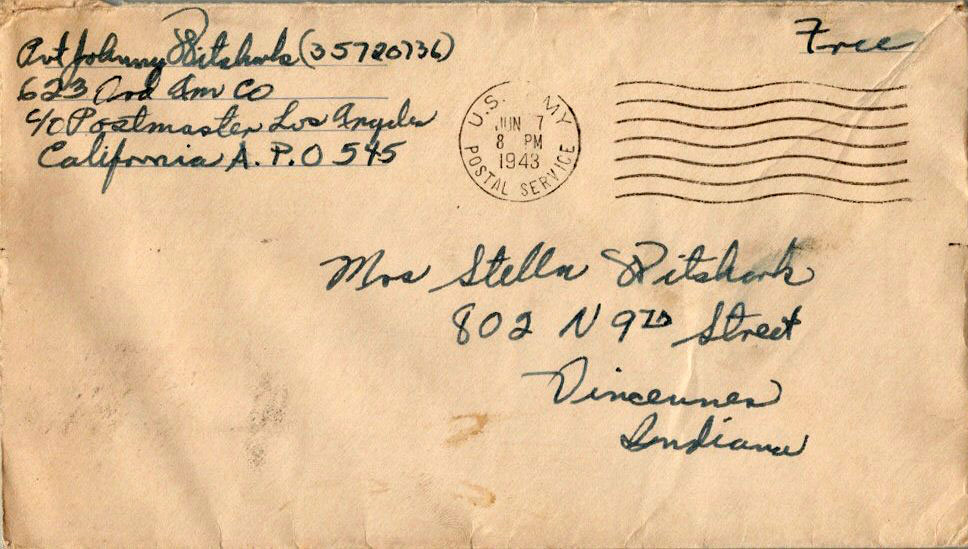 Pvt Johnny Pitshark (35720736)
623 Ord Am Co
c/o Postmaster Los Angeles
California A.P.O 545
Free
U.S. MY
JUN 7
8 PM
1943
POSTAL SERVICE
Mrs Stella Pitshark
802 N 9TH Street
Vincennes
Indiana